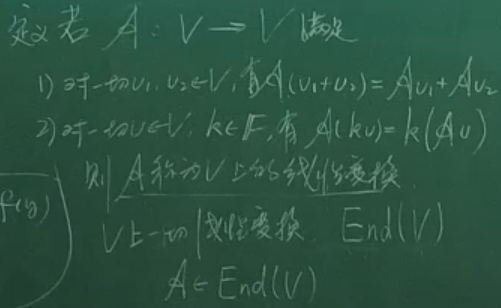 定义 若 A: V → V 满足
1) 对一切v₁, v₂∈V, 有A(v₁+v₂) = Av₁ + Av₂
2) 对一切v∈V, k∈F, 有 A(kv) = k(Av)
则 A称为V上的线性变换
f(y)
V上一切线性变换 End(V)
A∈End(V)